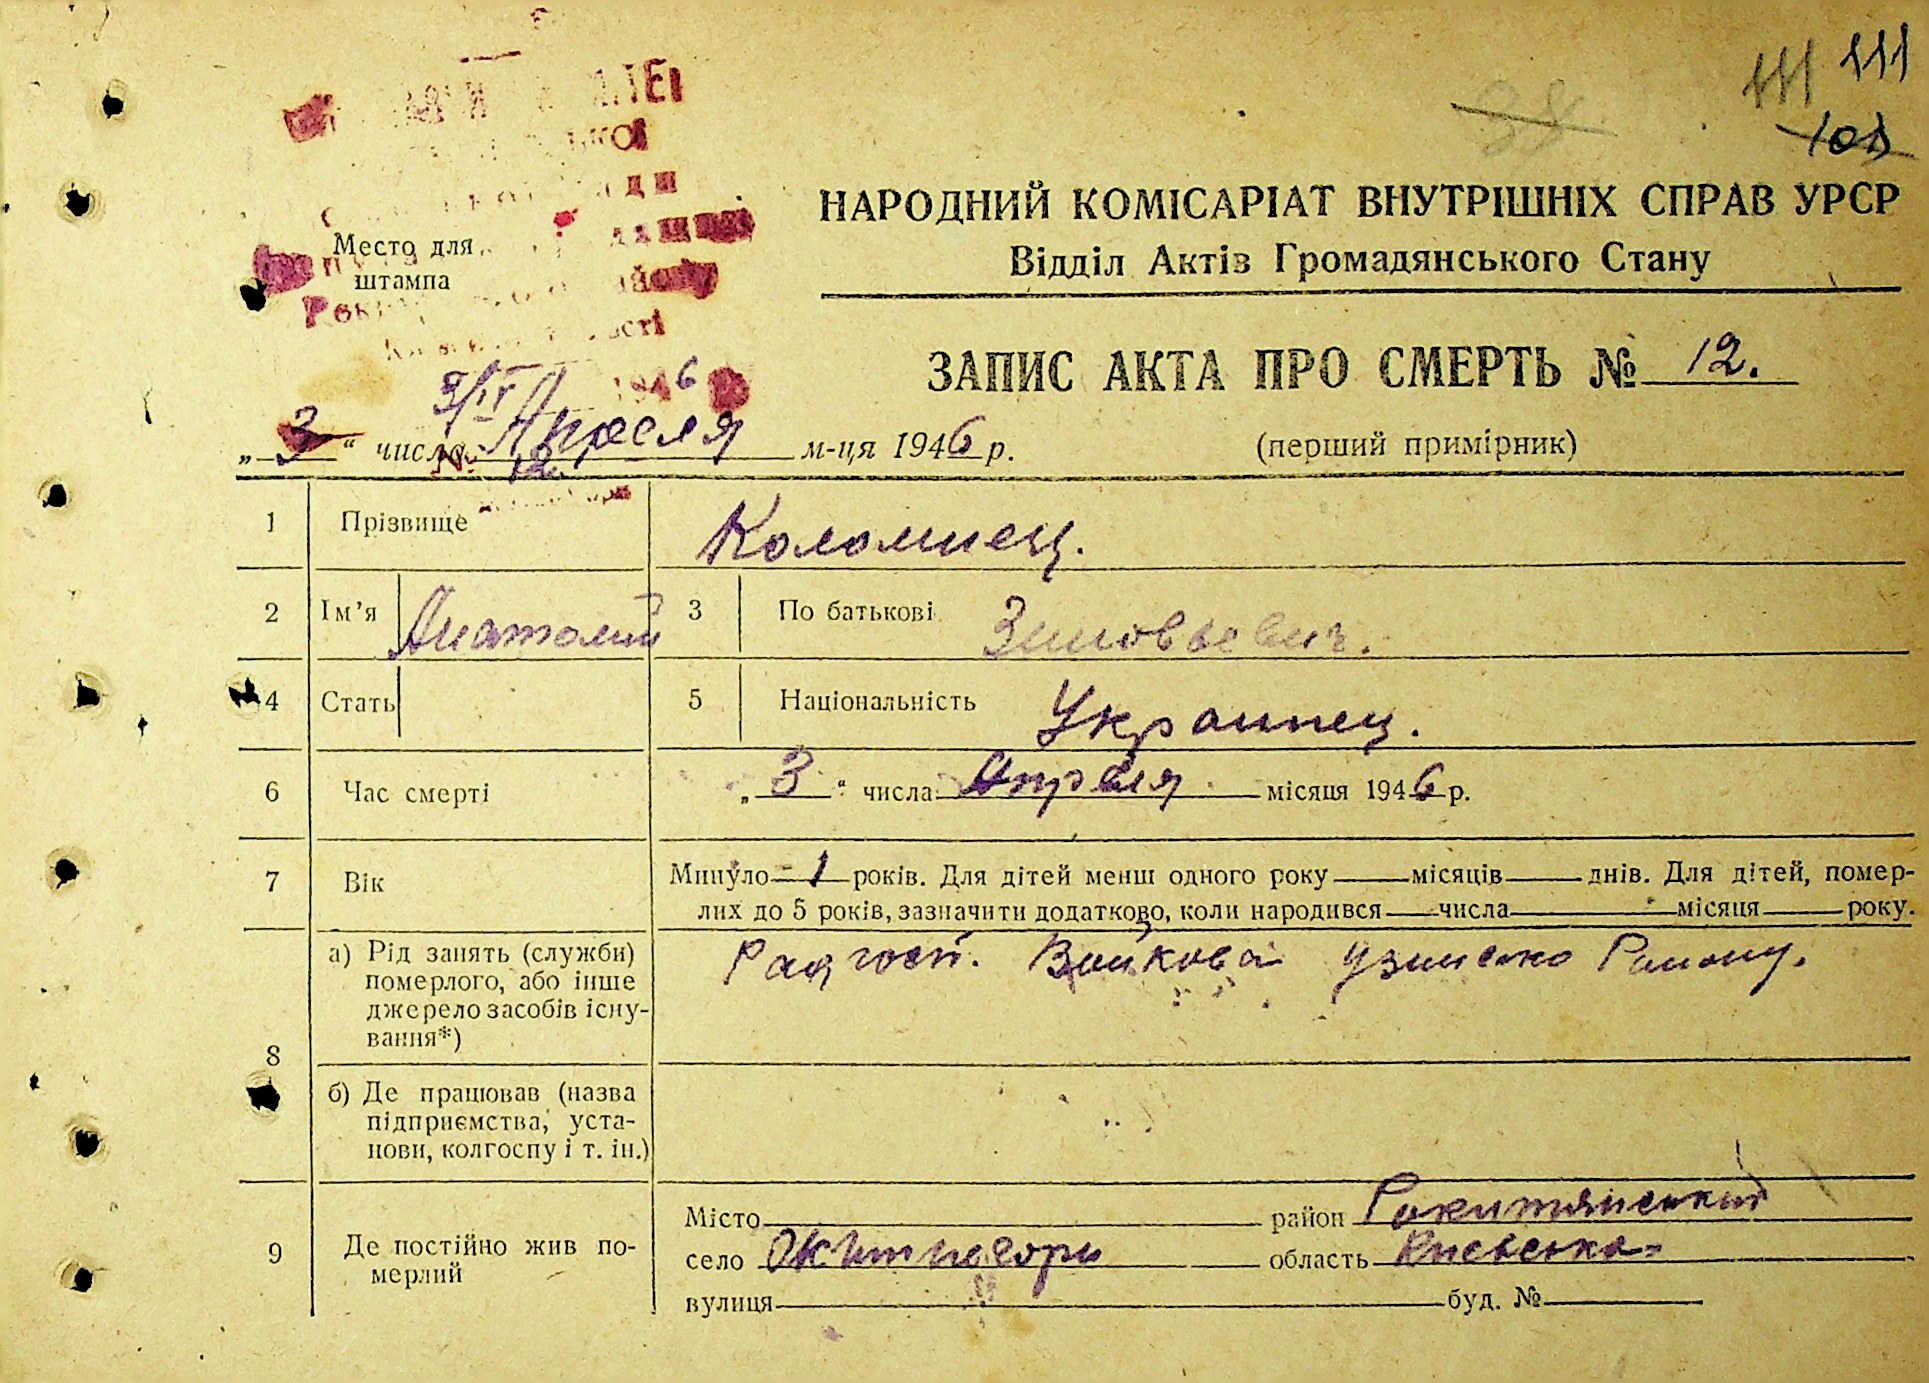 111 111
38 101
НАРОДНИЙ КОМІСАРІАТ ВНУТРІШНІХ СПРАВ УРСР
Відділ Актів Громадянського Стану
Место для
штампа
ЗАПИС АКТА ПРО СМЕРТЬ № 12.
3/IV 1946
„3“ числа Апреля м-ця 1946 р.
(перший примірник)
№ 12
1 Прізвище Коломиец.
2 Ім’я Анатолий 3 По батькові Зиновьевич.
4 Стать 5 Національність Украинец.
6 Час смерті „3“ числа Апреля місяця 1946 р.
7 Вік Минуло 1 років. Для дітей менш одного року місяців днів. Для дітей, помер-
лих до 5 років, зазначити додатково, коли народився числа місяця року.
8 а) Рід занять (служби)
померлого, або інше
джерело засобів існу-
вання*)
б) Де працював (назва
підприємства, уста-
нови, колгоспу і т. ін.)
9 Де постійно жив по-
мерлий
Місто район Рокитянський
село область Киевська
вулиця буд. №